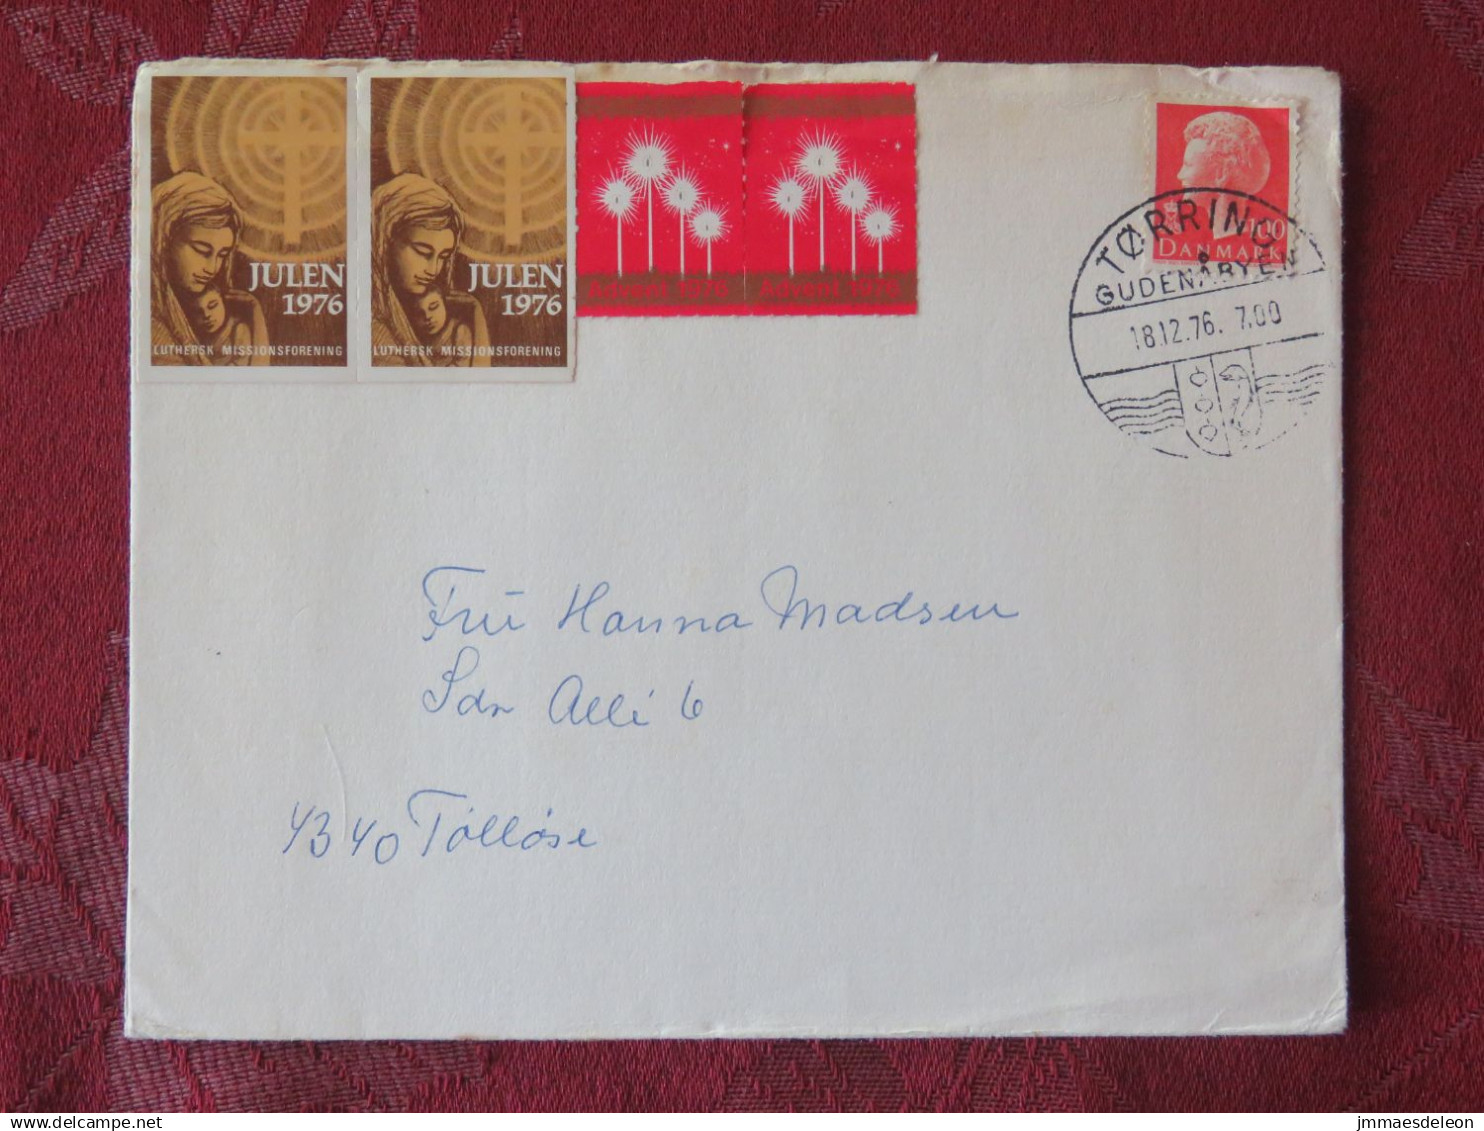 JULEN
1976
LUTHERSK MISSIONSFORENING
JULEN
1976
LUTHERSK MISSIONSFORENING
Advent 1976
Advent 1976
100
DANMARK
TØRRING
GUDENÅBYEN
18.12.76. 7.00
Fru Hanna Madsen
Sdr Alle 6
4340 Tølløse
www.delcampe.net
jmmaesdeleon